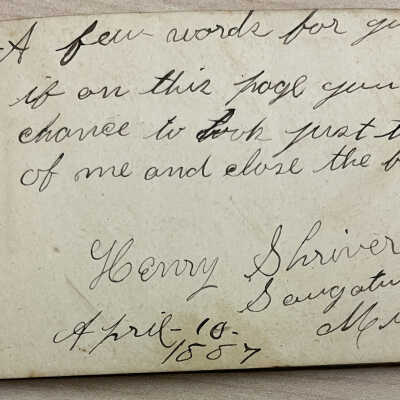 A few words for yo
if on this page you
chance to look just t
of me and close the b
Henry Shriver
Saugatu
April-10- Mi
1887